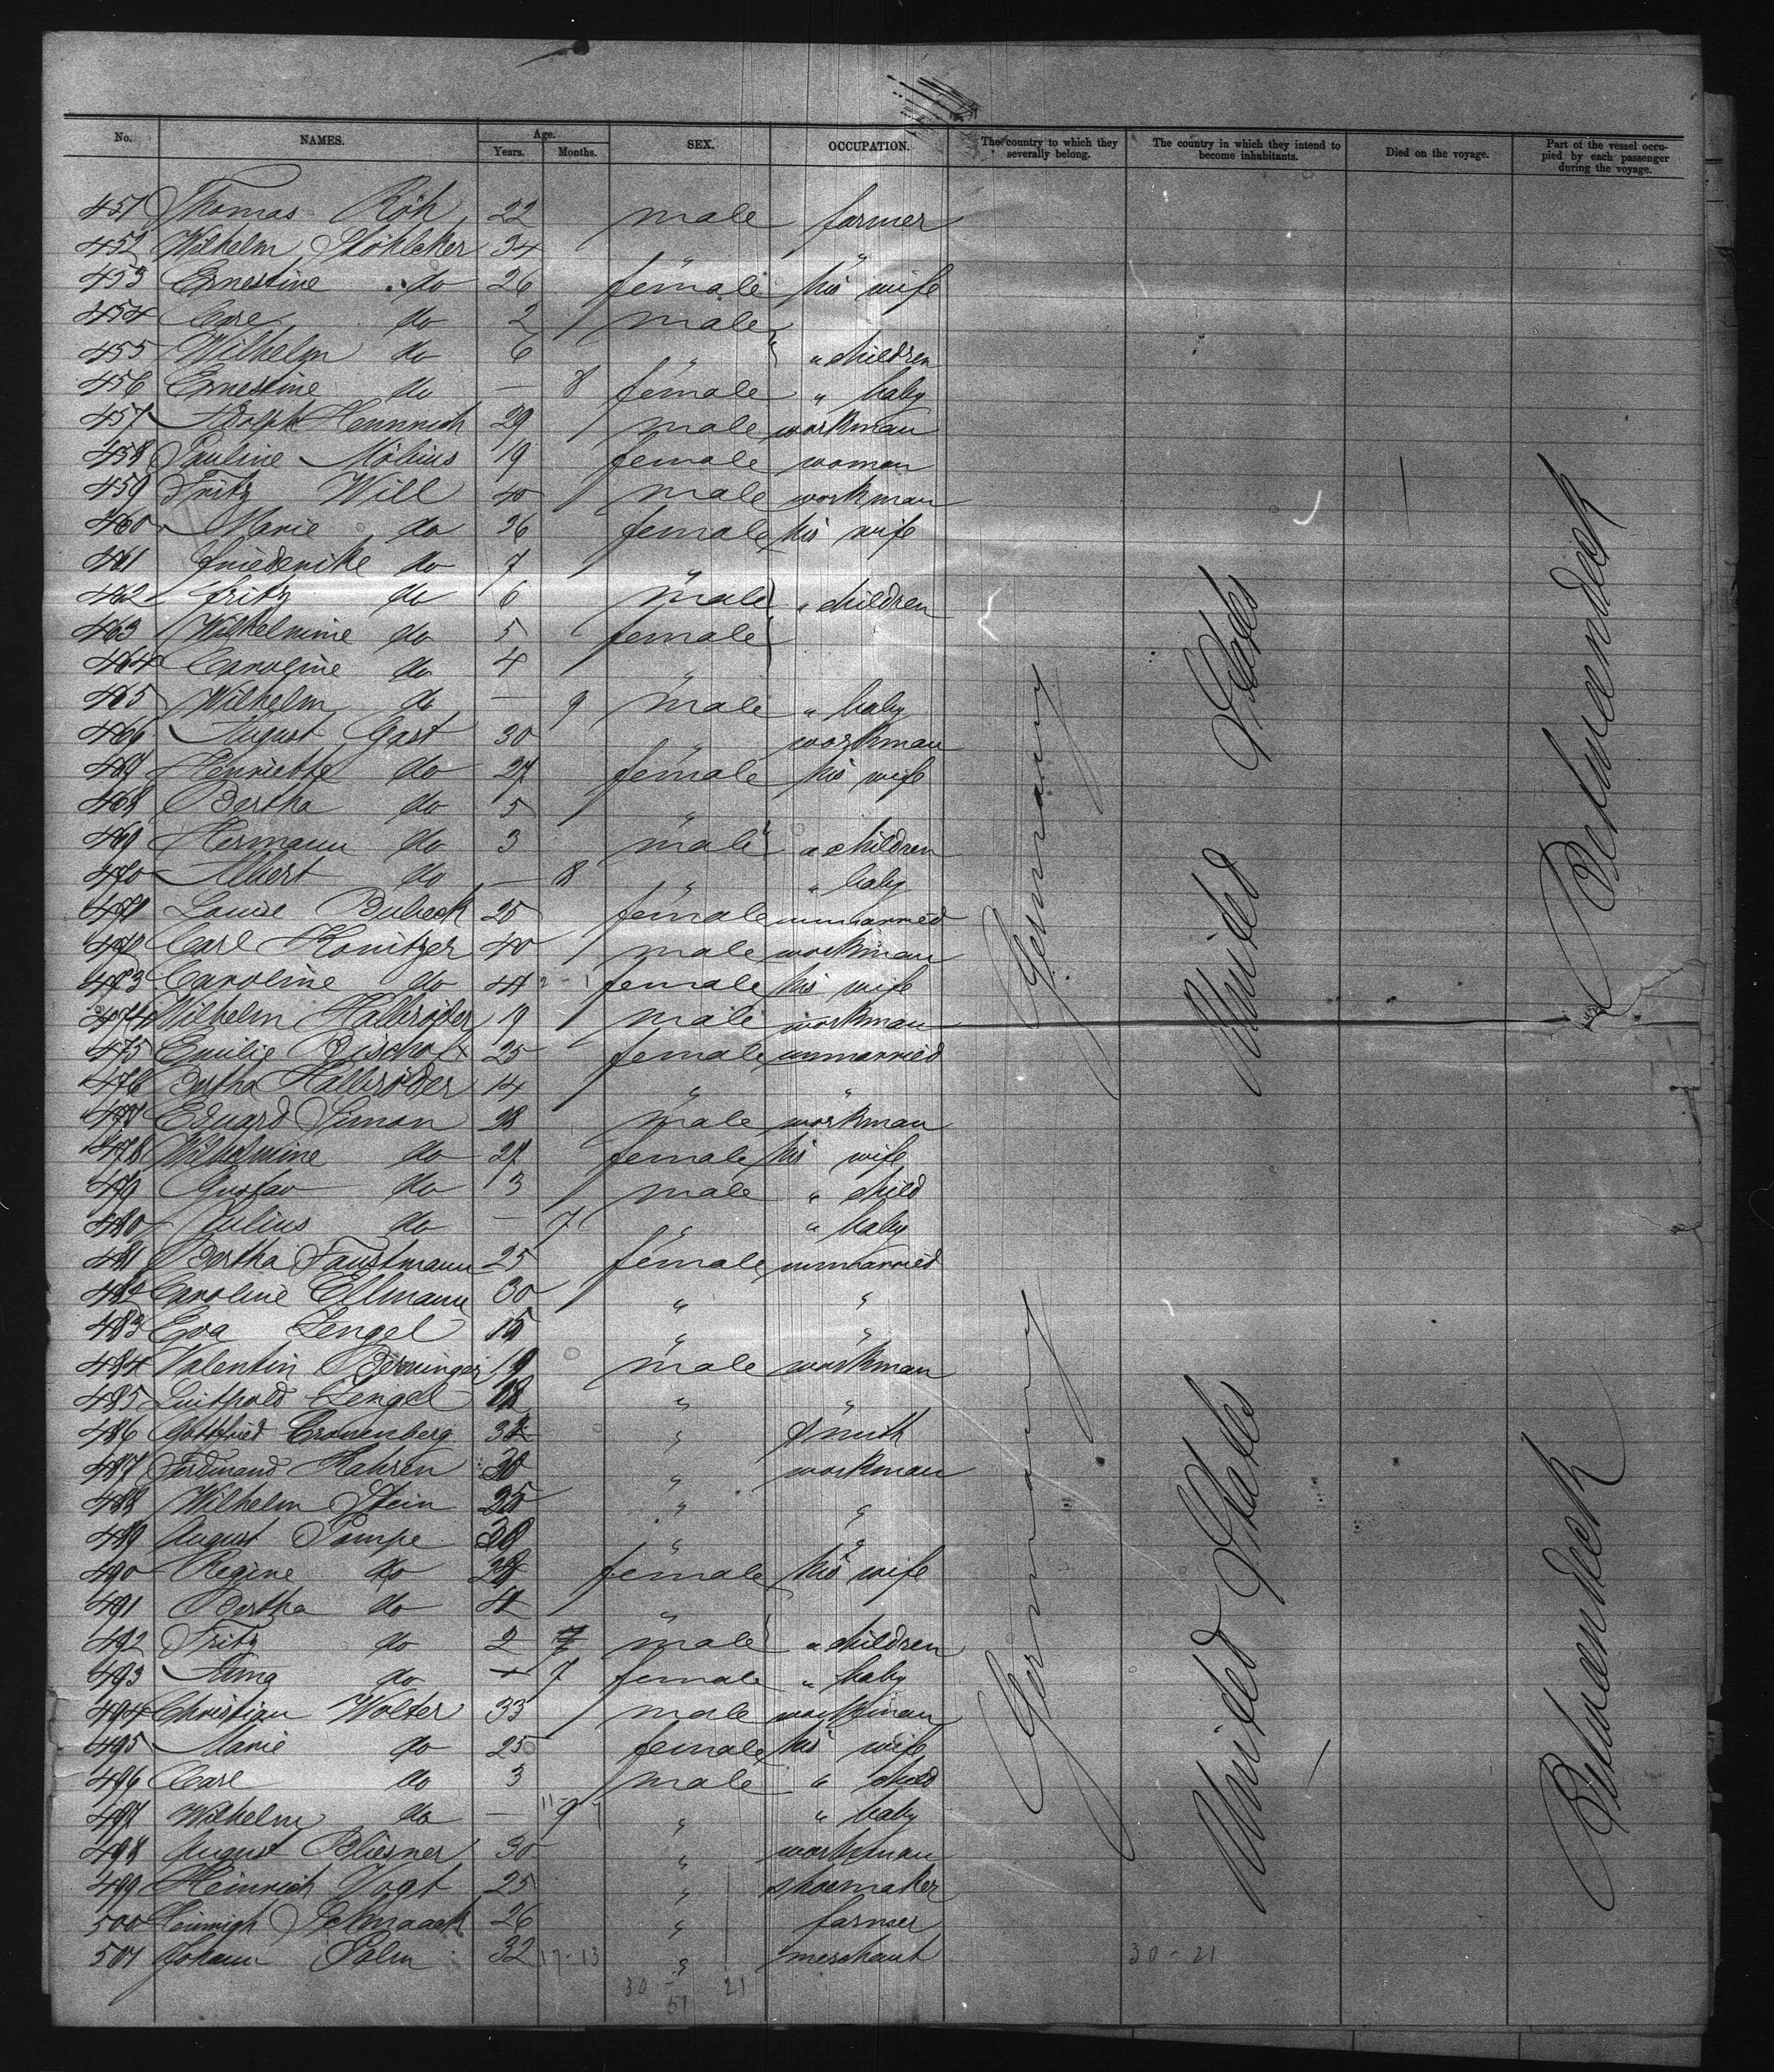 No. NAMES. Age. Years. Months. SEX. OCCUPATION. The country to which they severally belong. The country in which they intend to become inhabitants. Died on the voyage. Part of the vessel occupied by each passenger during the voyage.
451 Thomas Röh 22 male farmer
452 Wilhelm 34 " "
453 Ernestine do 26 female his wife
454 Carl do 2 male
455 Wilhelm do 6 " " children
456 Ernestine do — 8 female " baby
457 Adolph 29 male workman
458 Pauline Möbius 19 female woman
459 Fritz Will 40 male workman
460 Marie do 36 female his wife
461 Friederike do 7 "
462 Fritz do 6 male " children
463 Wilhelmine do 5 female
464 Caroline do 4 "
465 Wilhelm do — 9 male " baby
466 August Gast 30 " workman
467 Henriette do 27 female his wife
468 Bertha do 5 "
469 Hermann do 3 male " children
470 Albert do — 8 " " baby
471 Louise Bubeck 25 female unmarried
472 Carl Konitzer 40 male workman
473 Caroline do 41 female his wife
474 Wilhelm Halbröder 19 male workman
475 Emilie Bischof 25 female unmarried
476 Bertha Halbröder 14 " "
477 Eduard Simon 28 male workman
478 Wilhelmine do 27 female his wife
479 Gustav do 3 male " child
480 Julius do — 7 " " baby
481 Bertha Faustmann 25 female unmarried
482 Caroline Ellmann 30 " "
483 Eva Lengel 15 " "
484 Valentin Berninger 19 male workman
485 Luitpold Lengel " "
486 Gottfried Cronenberg " smith
487 Ferdinand Hahren " workman
488 Wilhelm Stein 25 " "
489 August Pompe " "
490 Regine do female his wife
491 Bertha do 4 "
492 Fritz do 2 male " children
493 Anna do 7 female " baby
494 Christian Wolter 33 male workman
495 Marie do 25 female his wife
496 Carl do 3 male " child
497 Wilhelm do — 9 " " baby
498 August Bliesner 30 " workman
499 Heinrich Vogt 25 " shoemaker
500 Heinrich 26 " farmer
501 Johann 32 17-13 " merchant 30-21
30 - 21
51
Germany
United States
Betweendeck
Germany
United States
Betweendeck